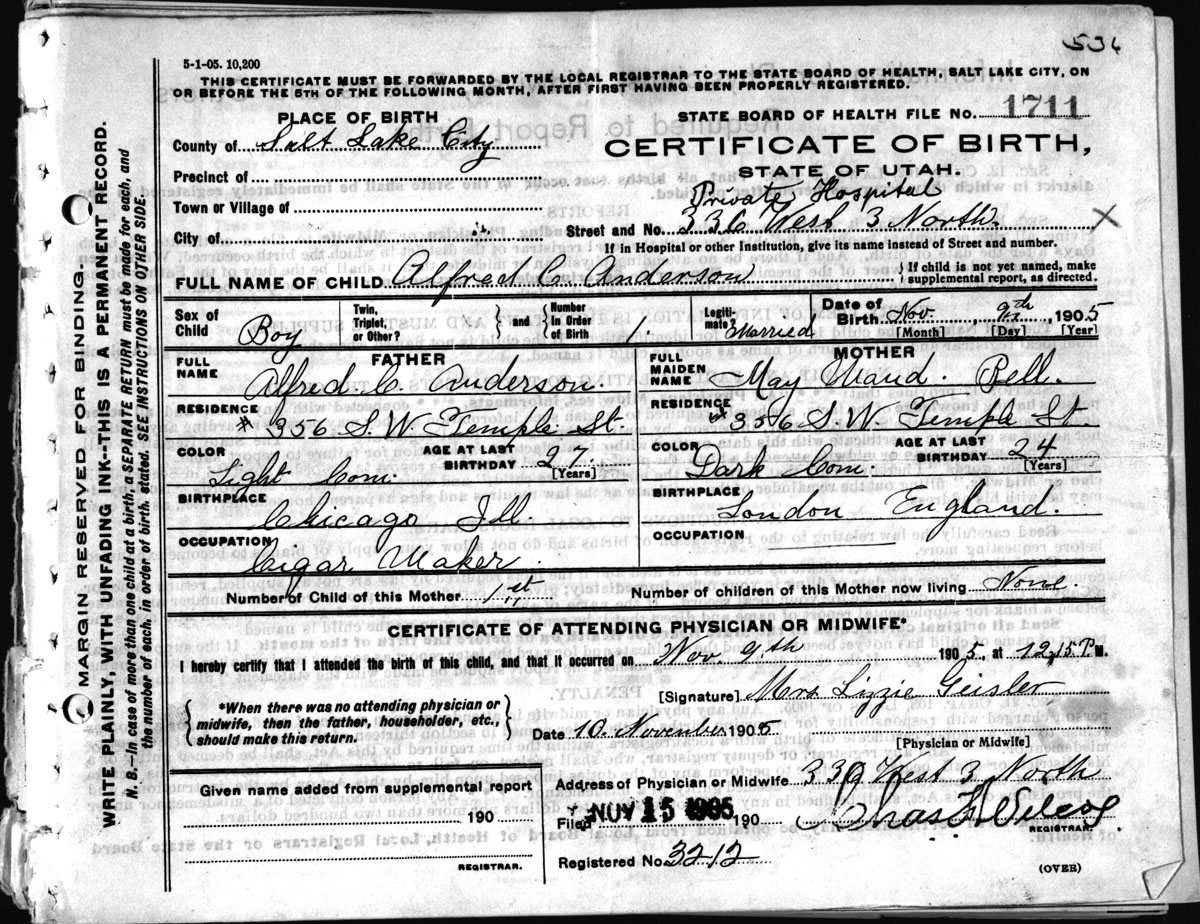 536
5-1-05. 10,200
THIS CERTIFICATE MUST BE FORWARDED BY THE LOCAL REGISTRAR TO THE STATE BOARD OF HEALTH, SALT LAKE CITY, ON
OR BEFORE THE 5TH OF THE FOLLOWING MONTH, AFTER FIRST HAVING BEEN PROPERLY REGISTERED.
PLACE OF BIRTH
County of Salt Lake City
Precinct of
Town or Village of
City of
STATE BOARD OF HEALTH FILE NO. 1711
CERTIFICATE OF BIRTH,
STATE OF UTAH.
Private Hospital
Street and No. 336 West 3 North X
If in Hospital or other Institution, give its name instead of Street and number.
FULL NAME OF CHILD Alfred C. Anderson { If child is not yet named, make supplemental report, as directed.
Sex of Child Boy
Twin, Triplet, or Other?
and Number in Order of Birth 1.
Legitimate? Married
Date of Birth Nov. 9th 1905
[Month] [Day] [Year]
FATHER
FULL NAME Alfred C. Anderson.
RESIDENCE # 356 S. W. Temple St.
COLOR Light Com.
AGE AT LAST BIRTHDAY 27. [Years]
BIRTHPLACE Chicago Ill.
OCCUPATION Cigar Maker.
MOTHER
FULL MAIDEN NAME May Maud. Bell.
RESIDENCE # 356 S. W. Temple St.
COLOR Dark Com.
AGE AT LAST BIRTHDAY 24 (Years)
BIRTHPLACE London England.
OCCUPATION
Number of Child of this Mother 1st
Number of children of this Mother now living None.
CERTIFICATE OF ATTENDING PHYSICIAN OR MIDWIFE*
I hereby certify that I attended the birth of this child, and that it occurred on Nov. 9th 1905, at 12,15 P. M.
*When there was no attending physician or
midwife, then the father, householder, etc.,
should make this return.
[Signature] Mrs Lizzie Geisler
Date 10. November 1905
[Physician or Midwife]
Address of Physician or Midwife 339 West 3 North
Given name added from supplemental report
190
REGISTRAR.
Filed NOV 15 1905 190
Chas. F. Wilcox
REGISTRAR.
Registered No. 3212
(OVER)
MARGIN RESERVED FOR BINDING.
WRITE PLAINLY, WITH UNFADING INK--THIS IS A PERMANENT RECORD.
N. B.--In case of more than one child at a birth, a SEPARATE RETURN must be made for each, and
the number of each, in order of birth stated. SEE INSTRUCTIONS ON OTHER SIDE.